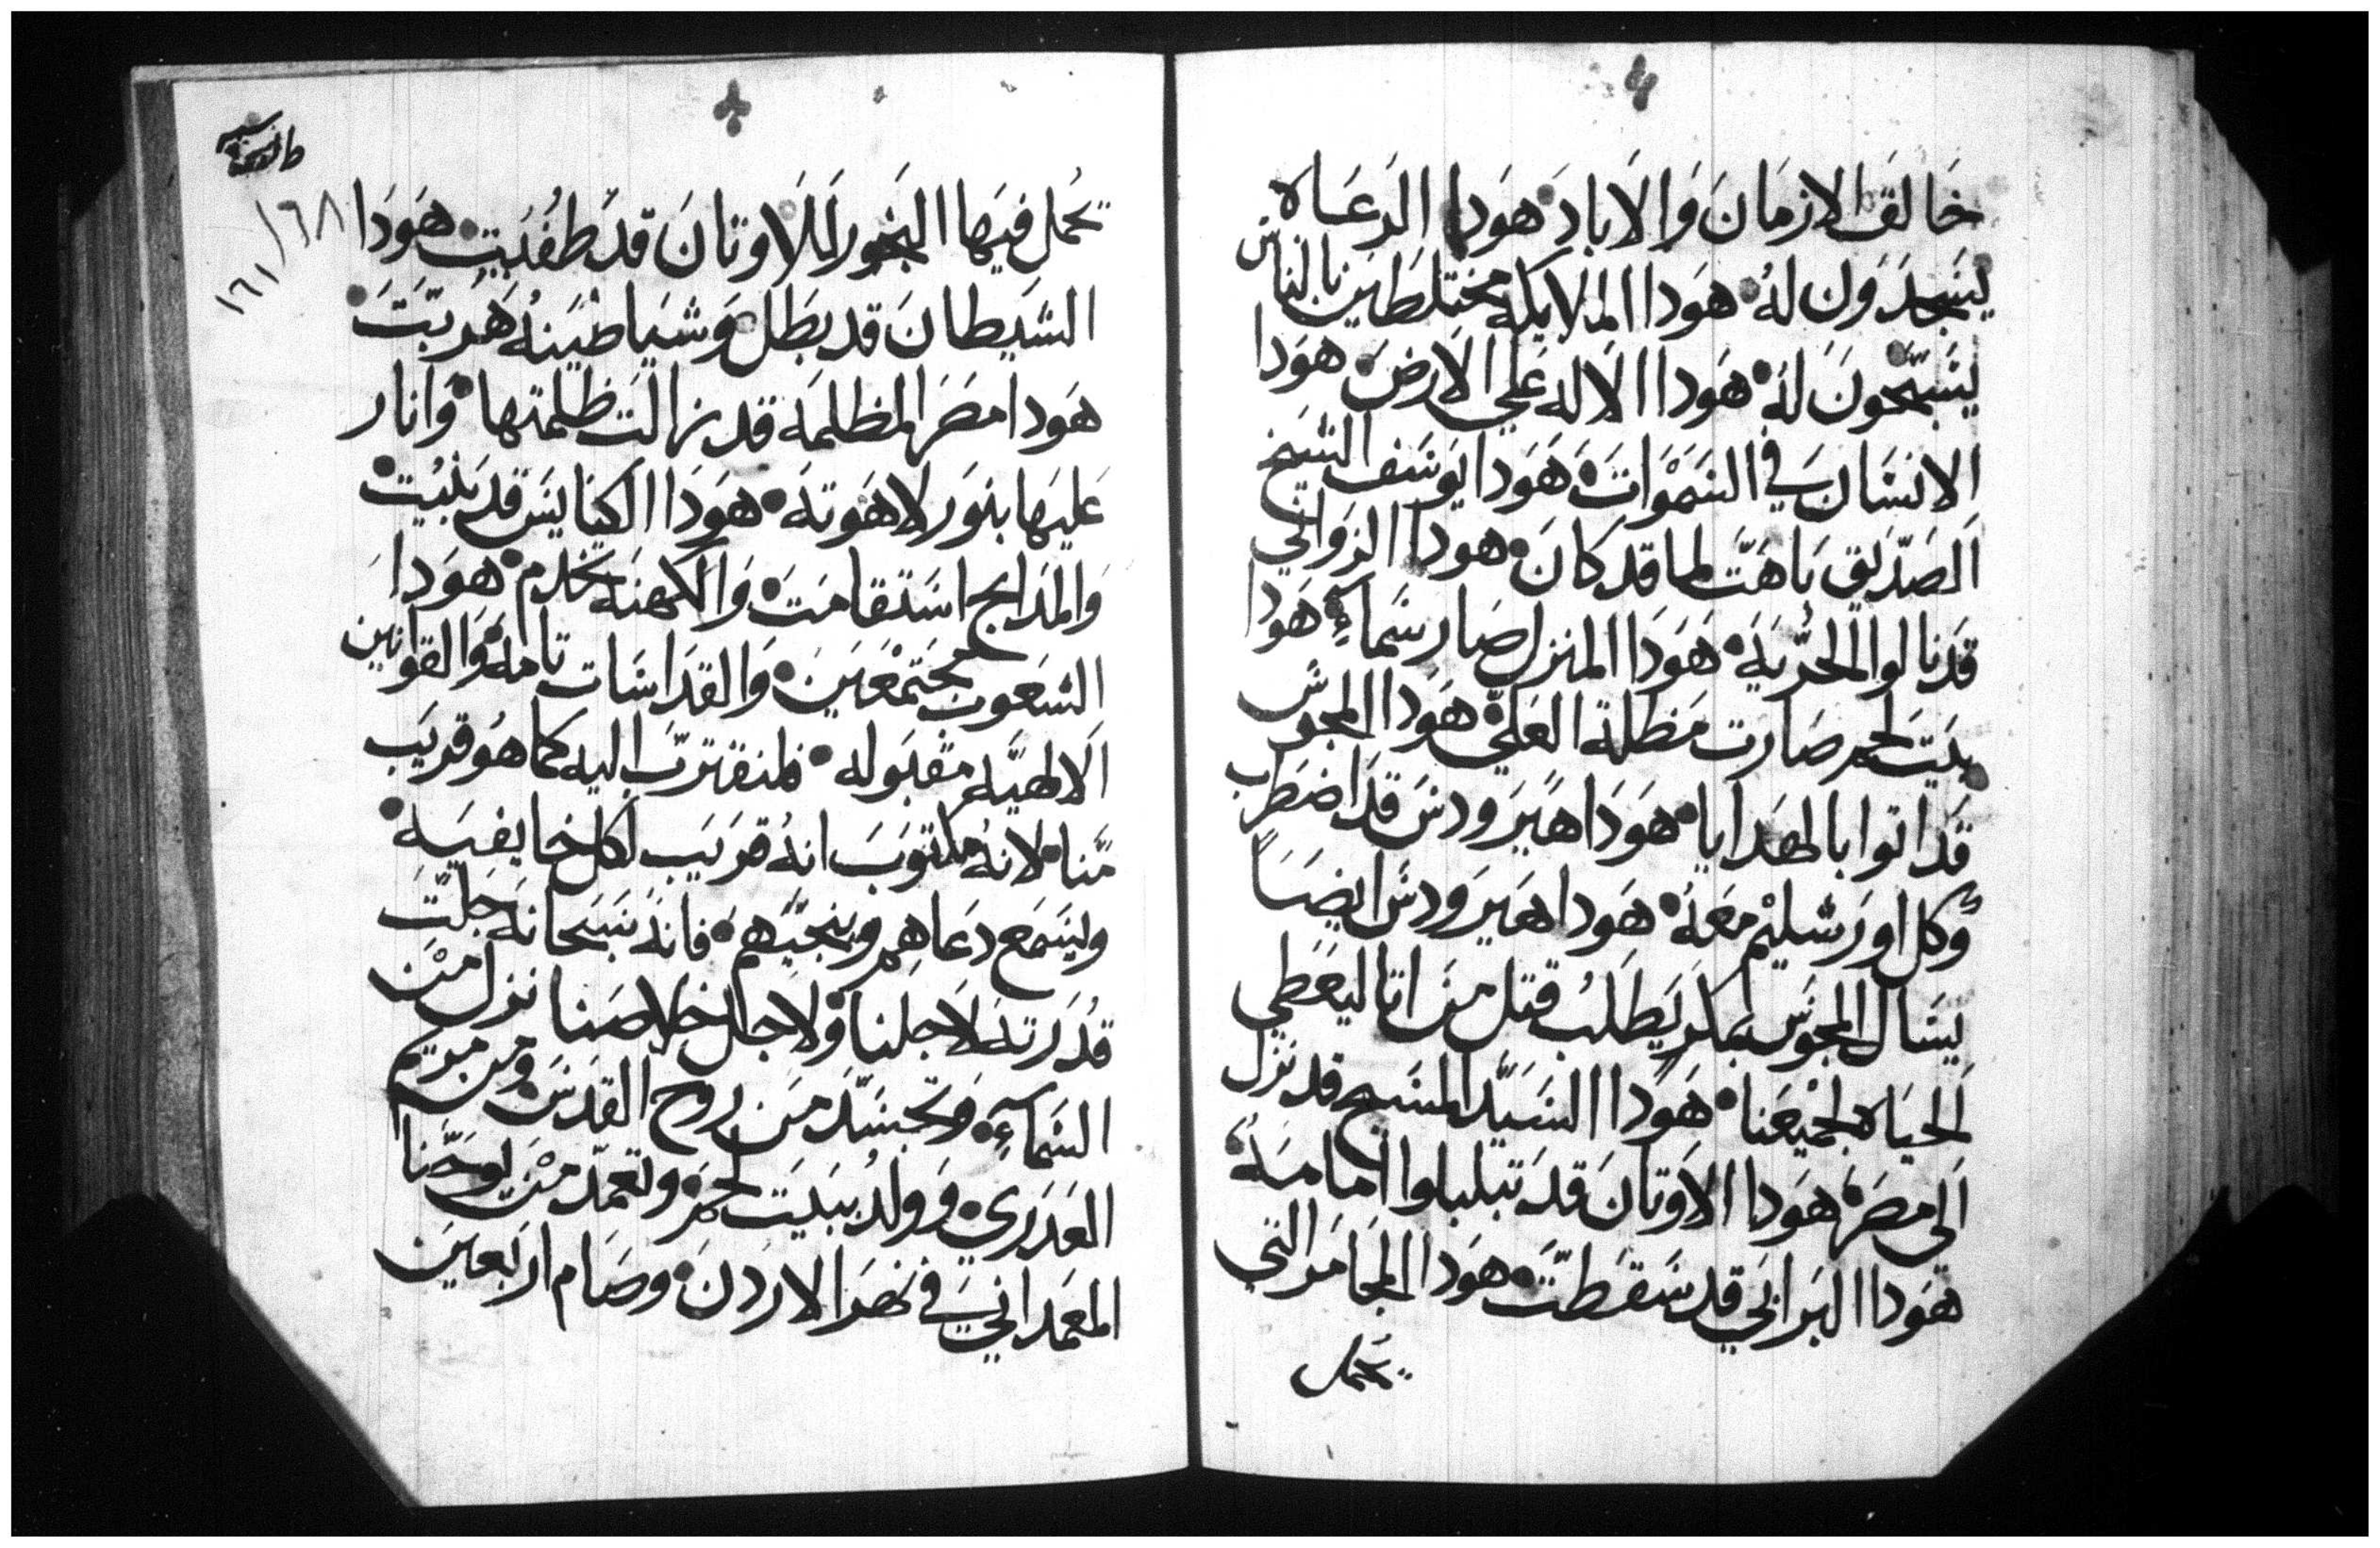 خالق الازمان والاباد هودا الرعاه
يسجدون له هودا الملايكه مختلطين بالناس
يسبحون له هودا الاله علي الارض هودا
الانسان في السموات هودا يوسف الشيخ
الصديق باهت لما قد كان هودا الزواني
قد نالوا الحريه هودا المنزل صار سماء هودا
بيت لحم صارت مظلة العلي هودا المجوس
قد اتوا بالهدايا هودا هيرودس قد اضطرب
وكل اورشليم معه هودا هيرودس ايضاً
يسال المجوس بمكر يطلب قتل من اتا ليعطي
الحياه لجميعنا هودا السيد المسيح قد نزل
الى مصر هودا الاوتان قد تبلبلوا امامه
هودا البرابي قد سقطت هودا المجامر التي
يحمل
يحمل فيها البخور للاوتان قد طفيت هودا
الشيطان قد بطل وشياطينه هربت
هودا مصر المظلمه قد زالت ظلمتها وانار
عليها بنور لاهوته هودا الكنايس قد بنيت
والمدابح استقامت والكهنه يخدم هودا
الشعوب مجتمعين والقداسات تامه والقوانين
الالهيه مقبوله فلنقترب اليه كما هو قريب
منا لانه مكتوب انه قريب لكل خايفيه
ويسمع دعاهم وينجيهم فانه سبحانه جلت
قدرته لاجلنا ولاجل خلاصنا نزل من
السماء وتجسد من روح القدس ومن مريم
العدري وولد ببيت لحم وتعمد من يوحنا
المعمداني في نهر الاردن وصام اربعين
١٦٨
١٦١